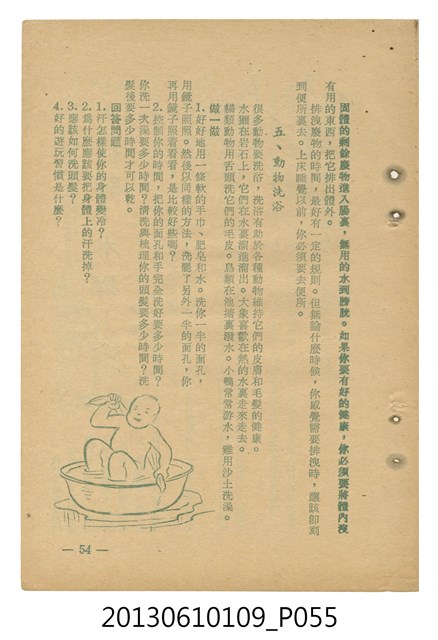 固體的剩餘廢物進入腸裏,無用的水到膀胱。如果你要有好的健康,你必須要將體內沒
有用的東西,把它排出體外。
排洩廢物的時間,最好有一定的規則。但無論什麼時候,你感覺需要排洩時,應該即刻
到便所裏去。上床睡覺以前,你必須要去便所。
五、動物洗浴
很多動物要洗浴,洗浴有助於各種動物維持它們的皮膚和毛髮的健康。
水獺在岩石上,它們在水裏溜進溜出。大象喜歡在熱的水裏走來走去。
貓類動物用舌頭洗它們的毛皮。鳥類在池塘裏潑水。小鴨常常游水,雞用沙土洗澡。
做一做
1.好好地用一條軟的手巾、肥皂和水。洗你一半的面孔,
用鏡子照照。然後以同樣的方法,洗罷了另外一半的面孔,你
再用鏡子照着看看,是比較好些嗎?
2.控制你的時間,把你的面孔和手完全洗好要多少時間?
你洗一次澡要多少時間?清洗與梳理你的頭髮要多少時間?洗
髮後要多少時間才可以乾。
回答問題
1.汗怎樣使你的身體變冷?
2.爲什麼應該要把身體上的汗洗掉?
3.應該如何洗頭髮?
4.好的遊玩習慣是什麼?
— 54 —
20130610109_P055